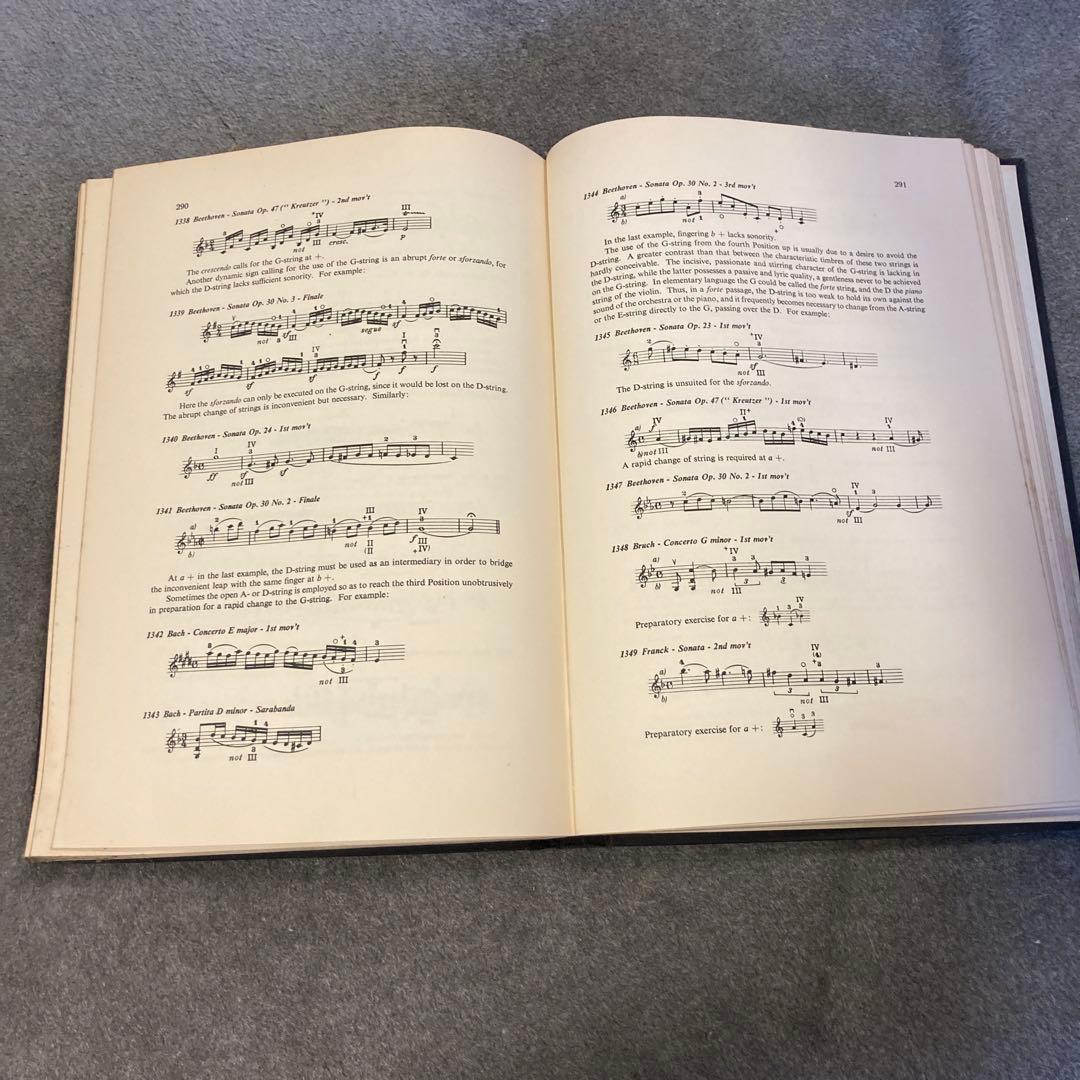 290
1338 Beethoven - Sonata Op. 47 (" Kreutzer ") - 2nd mov't
+IV III
not III cresc. p
The crescendo calls for the G-string at +.
Another dynamic sign calling for the use of the G-string is an abrupt forte or sforzando, for
which the D-string lacks sufficient sonority. For example:
1339 Beethoven - Sonata Op. 30 No. 3 - Finale
not III segue sf
IV I
sf sf sf f f f
Here the sforzando can only be executed on the G-string, since it would be lost on the D-string.
The abrupt change of strings is inconvenient but necessary. Similarly:
1340 Beethoven - Sonata Op. 24 - 1st mov't
I IV
ff sf sf
not III
1341 Beethoven - Sonata Op. 30 No. 2 - Finale
a) III IV
b) not II f III
(II +IV)
At a + in the last example, the D-string must be used as an intermediary in order to bridge
the inconvenient leap with the same finger at b +.
Sometimes the open A- or D-string is employed so as to reach the third Position unobtrusively
in preparation for a rapid change to the G-string. For example:
1342 Bach - Concerto E major - 1st mov't
not III
1343 Bach - Partita D minor - Sarabanda
1 4
3
not III
291
1344 Beethoven - Sonata Op. 30 No. 2 - 3rd mov't
a)
b) not 1
In the last example, fingering b + lacks sonority.
The use of the G-string from the fourth Position up is usually due to a desire to avoid the
D-string. A greater contrast than that between the characteristic timbres of these two strings is
hardly conceivable. The incisive, passionate and stirring character of the G-string is lacking in
the D-string, while the latter possesses a passive and lyric quality, a gentleness never to be achieved
on the G-string. In elementary language the G could be called the forte string, and the D the piano
string of the violin. Thus, in a forte passage, the D-string is too weak to hold its own against the
sound of the orchestra or the piano, and it frequently becomes necessary to change from the A-string
or the E-string directly to the G, passing over the D. For example:
1345 Beethoven - Sonata Op. 23 - 1st mov't
+IV
not III
The D-string is unsuited for the sforzando.
1346 Beethoven - Sonata Op. 47 (" Kreutzer ") - 1st mov't
a) IV II+ IV
b) not III not III
A rapid change of string is required at a +.
1347 Beethoven - Sonata Op. 30 No. 2 - 1st mov't
IV
sf
not III
1348 Bruch - Concerto G minor - 1st mov't
a) +IV
b) not III
Preparatory exercise for a +: IV
1349 Franck - Sonata - 2nd mov't
a) IV
b) not III
Preparatory exercise for a +: